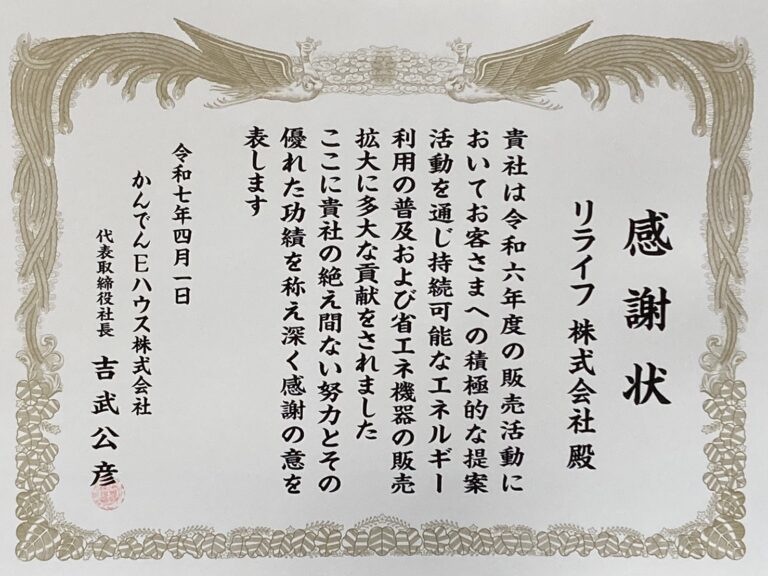 感謝状
リライフ 株式会社 殿
貴社は令和六年度の販売活動に
おいてお客さまへの積極的な提案
活動を通じ持続可能なエネルギー
利用の普及および省エネ機器の販売
拡大に多大な貢献をされました
ここに貴社の絶え間ない努力とその
優れた功績を称え深く感謝の意を
表します
令和七年四月一日
かんでんEハウス株式会社
代表取締役社長 吉武公彦